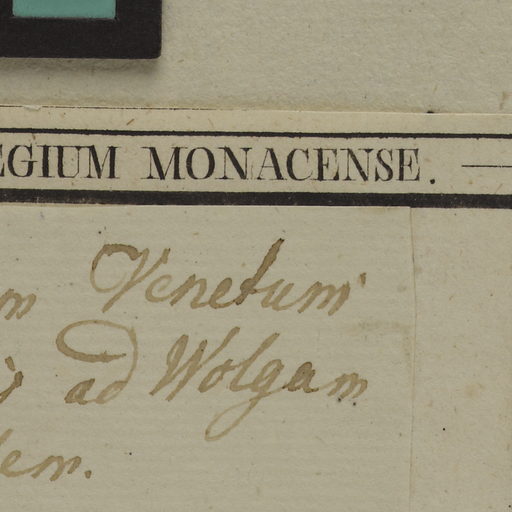 EGIUM MONACENSE.
m Venetum
ad Wolgam
em.